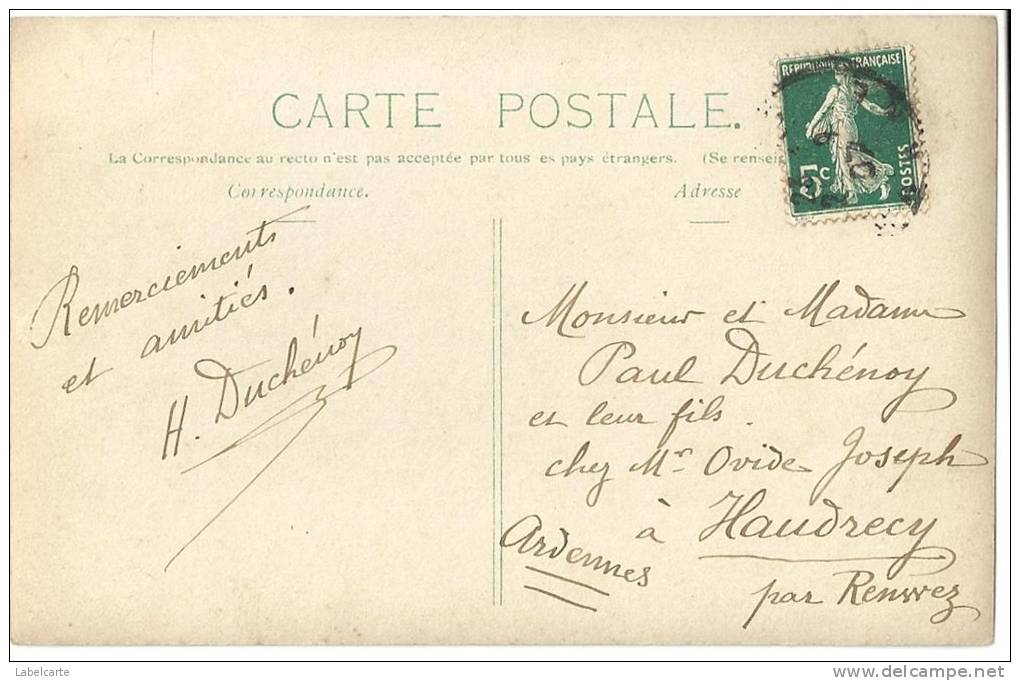 CARTE POSTALE.
La Correspondance au recto n'est pas acceptée par tous es pays étrangers. (Se rensei
Correspondance.
Adresse
REPUBLIQUE FRANÇAISE
POSTES
5c
Remerciements
et amitiés.
H. Duchénoy
Monsieur et Madame
Paul Duchénoy
et leur fils.
chez Mr Ovide Joseph
à Haudrecy
Ardennes
par Renwez
Labelcarte
http://www.delcampe.net